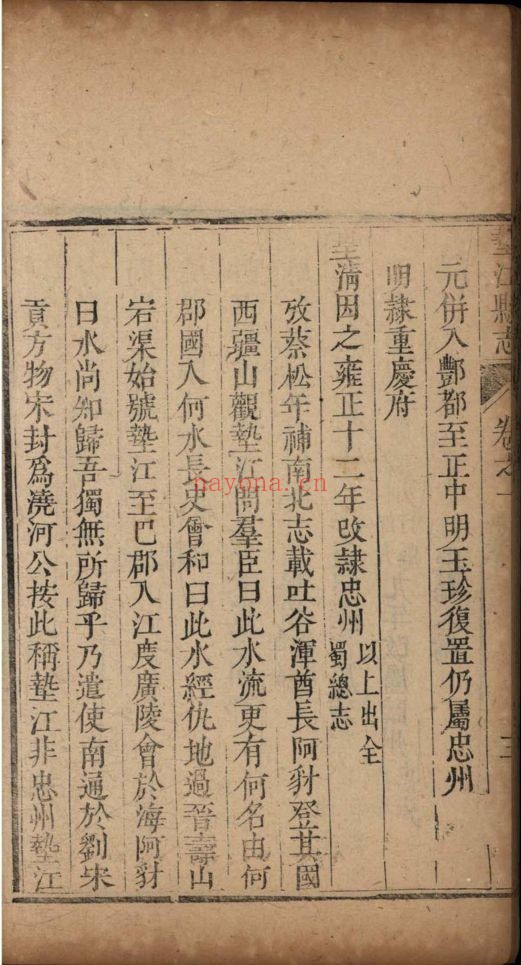 墊江縣志 卷之一 三
元併入酆都至正中明玉珍復置仍屬忠州
明隷重慶府
皇淸因之雍正十二年改隷忠州 以上出全
蜀總志
攷蔡松年補南北志載吐谷渾酋長阿豺登其國
西疆山觀墊江問羣臣曰此水流更有何名由何
郡國入何水長史會和曰此水經仇池過晉壽山
宕渠始號墊江至巴郡入江度廣陵會於海阿豺
曰水尚知歸吾獨無所歸乎乃遣使南通於劉宋
貢方物宋封爲澆河公按此稱墊江非忠州墊江
nayona.cn